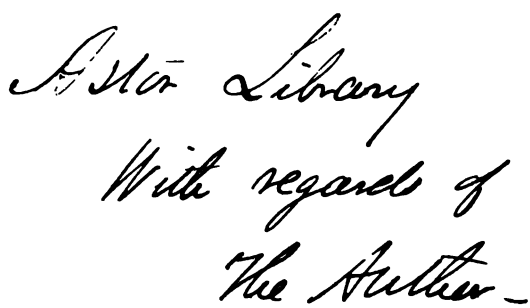 Astor Library
With regards of
The Author_